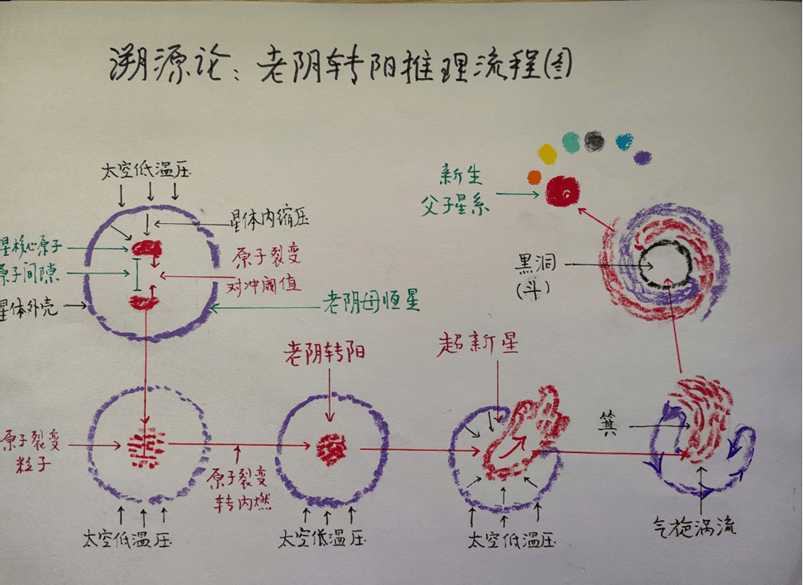 溯源论：老阴转阳推理流程图
太空低温压
星体内缩压
星核心原子
原子间隙
星体外壳
原子裂变
对冲阈值
老阴母恒星
新生
父子星系
黑洞
(斗)
老阴转阳
超新星
箕
原子裂变
粒子
原子裂变
转内燃
太空低温压
太空低温压
太空低温压
气旋涡流